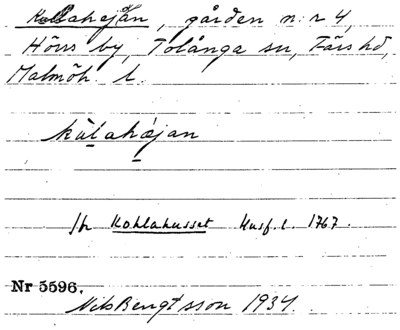 Kullahejan, gården n:r 4,
Hörrs by, Tolånga sn, Färs hd,
Malmöh l.
kùlahǽjan
fr Kohlahusset Husf.l. 1767.
Nr 5596.
Nils Bengtsson 1934.